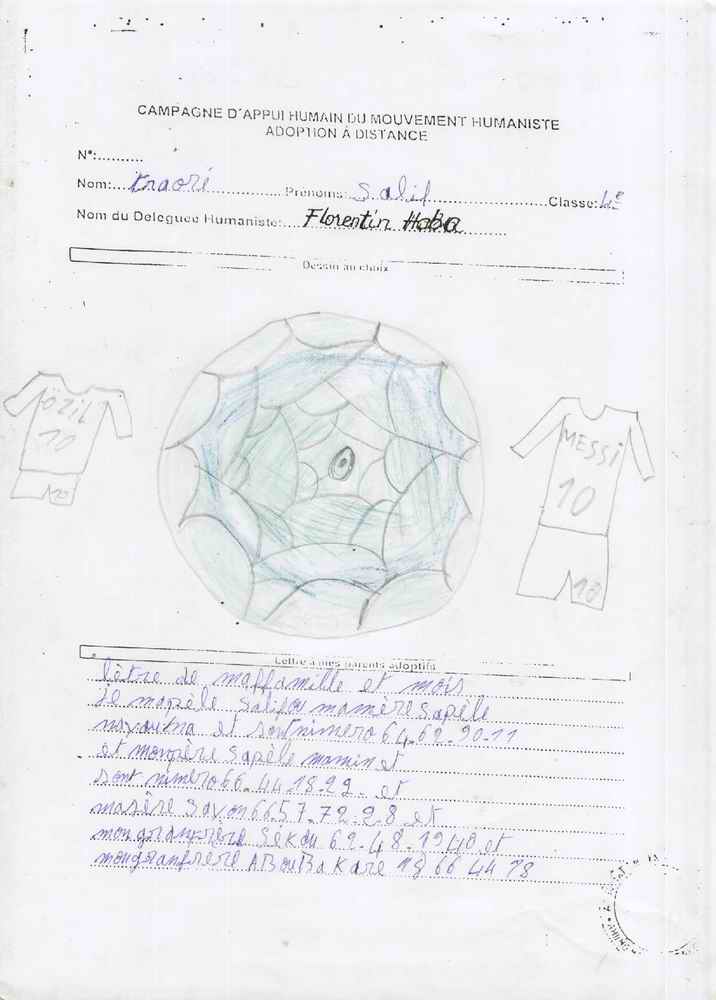 CAMPAGNE D'APPUI HUMAIN DU MOUVEMENT HUMANISTE
ADOPTION À DISTANCE
N°:..........
Nom:...traoré.................. Prénoms: Salif..............................Classe:4e
Nom du Deleguée Humaniste:.... Florentin Haba..........
Dessin au choix
ÖZIL
10
10
MESSI
10
10
Lettre à mes parents adoptifs
lètre de maffamille et mois
Je mapèle Salifou mamère sapèle
et sont nimero 64.62.90-11
et monpère sapèle mamin et
sont nimero 66.44.18.22. et
masère Savon 66 57.72.28 et
mongranfrère Sékou 62.48.1940 et
mongranfrère ABouBaKare 18 66 44 18